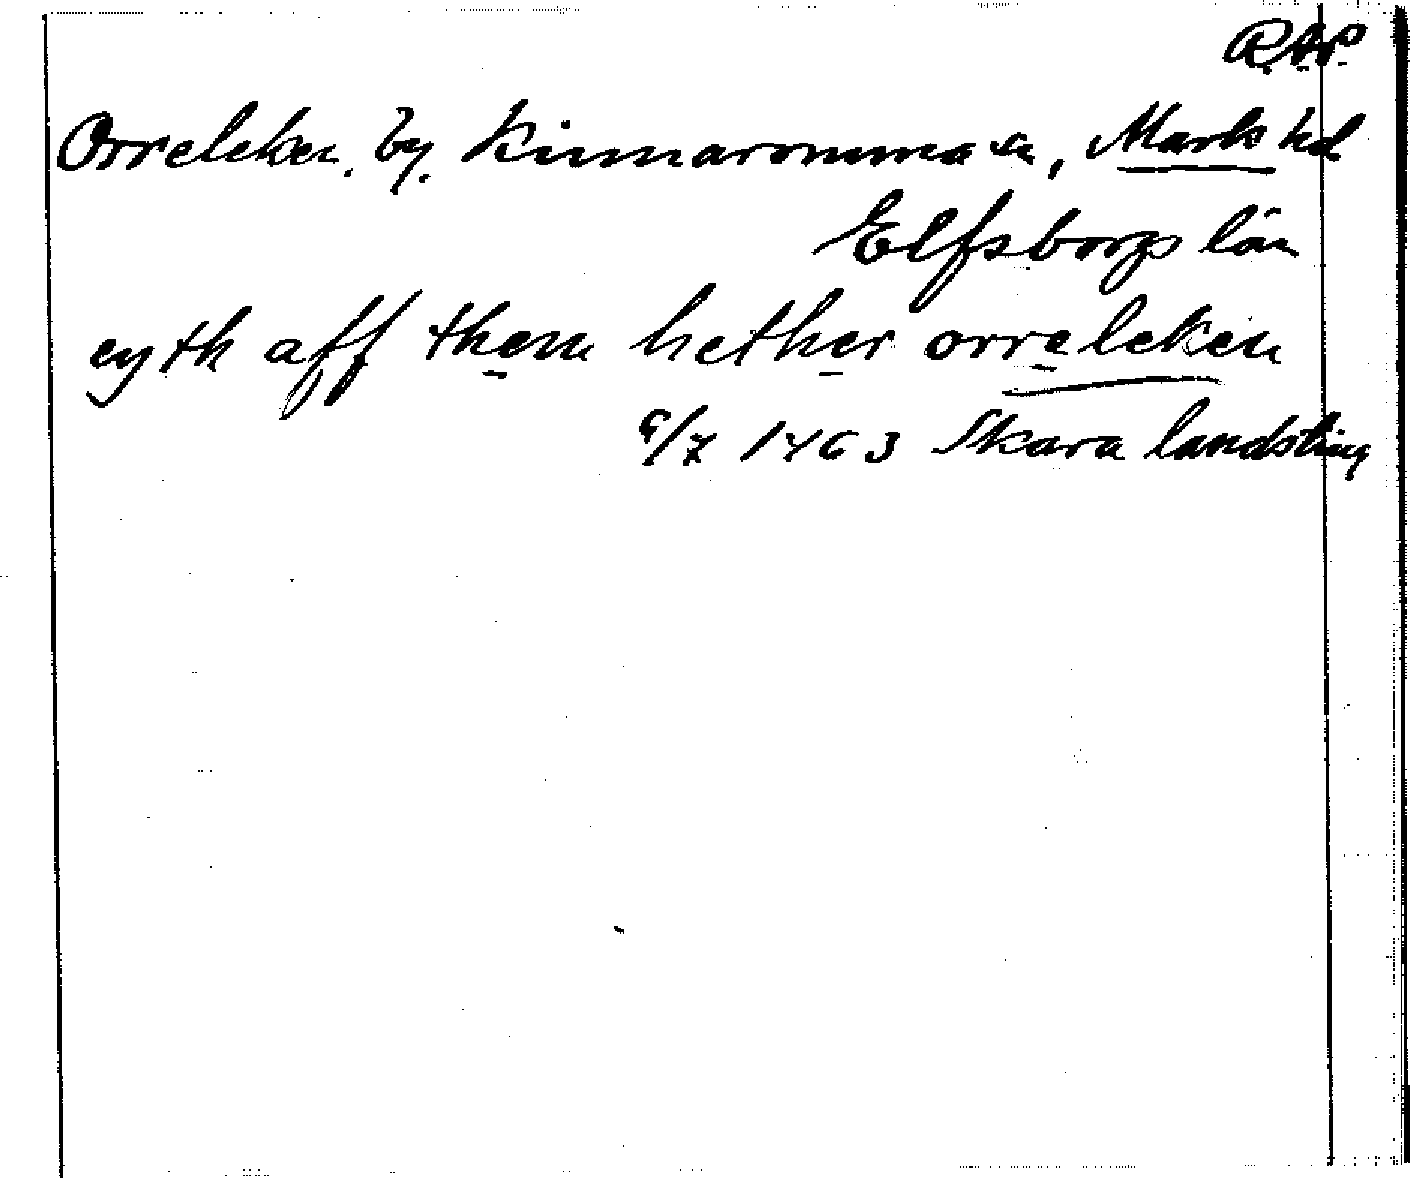 RAP
Orreleken. by. Kinnaromma sn, Marks hd
Elfsborgs län
eyth aff them hether orreleken
6/7 1463 Skara landsting